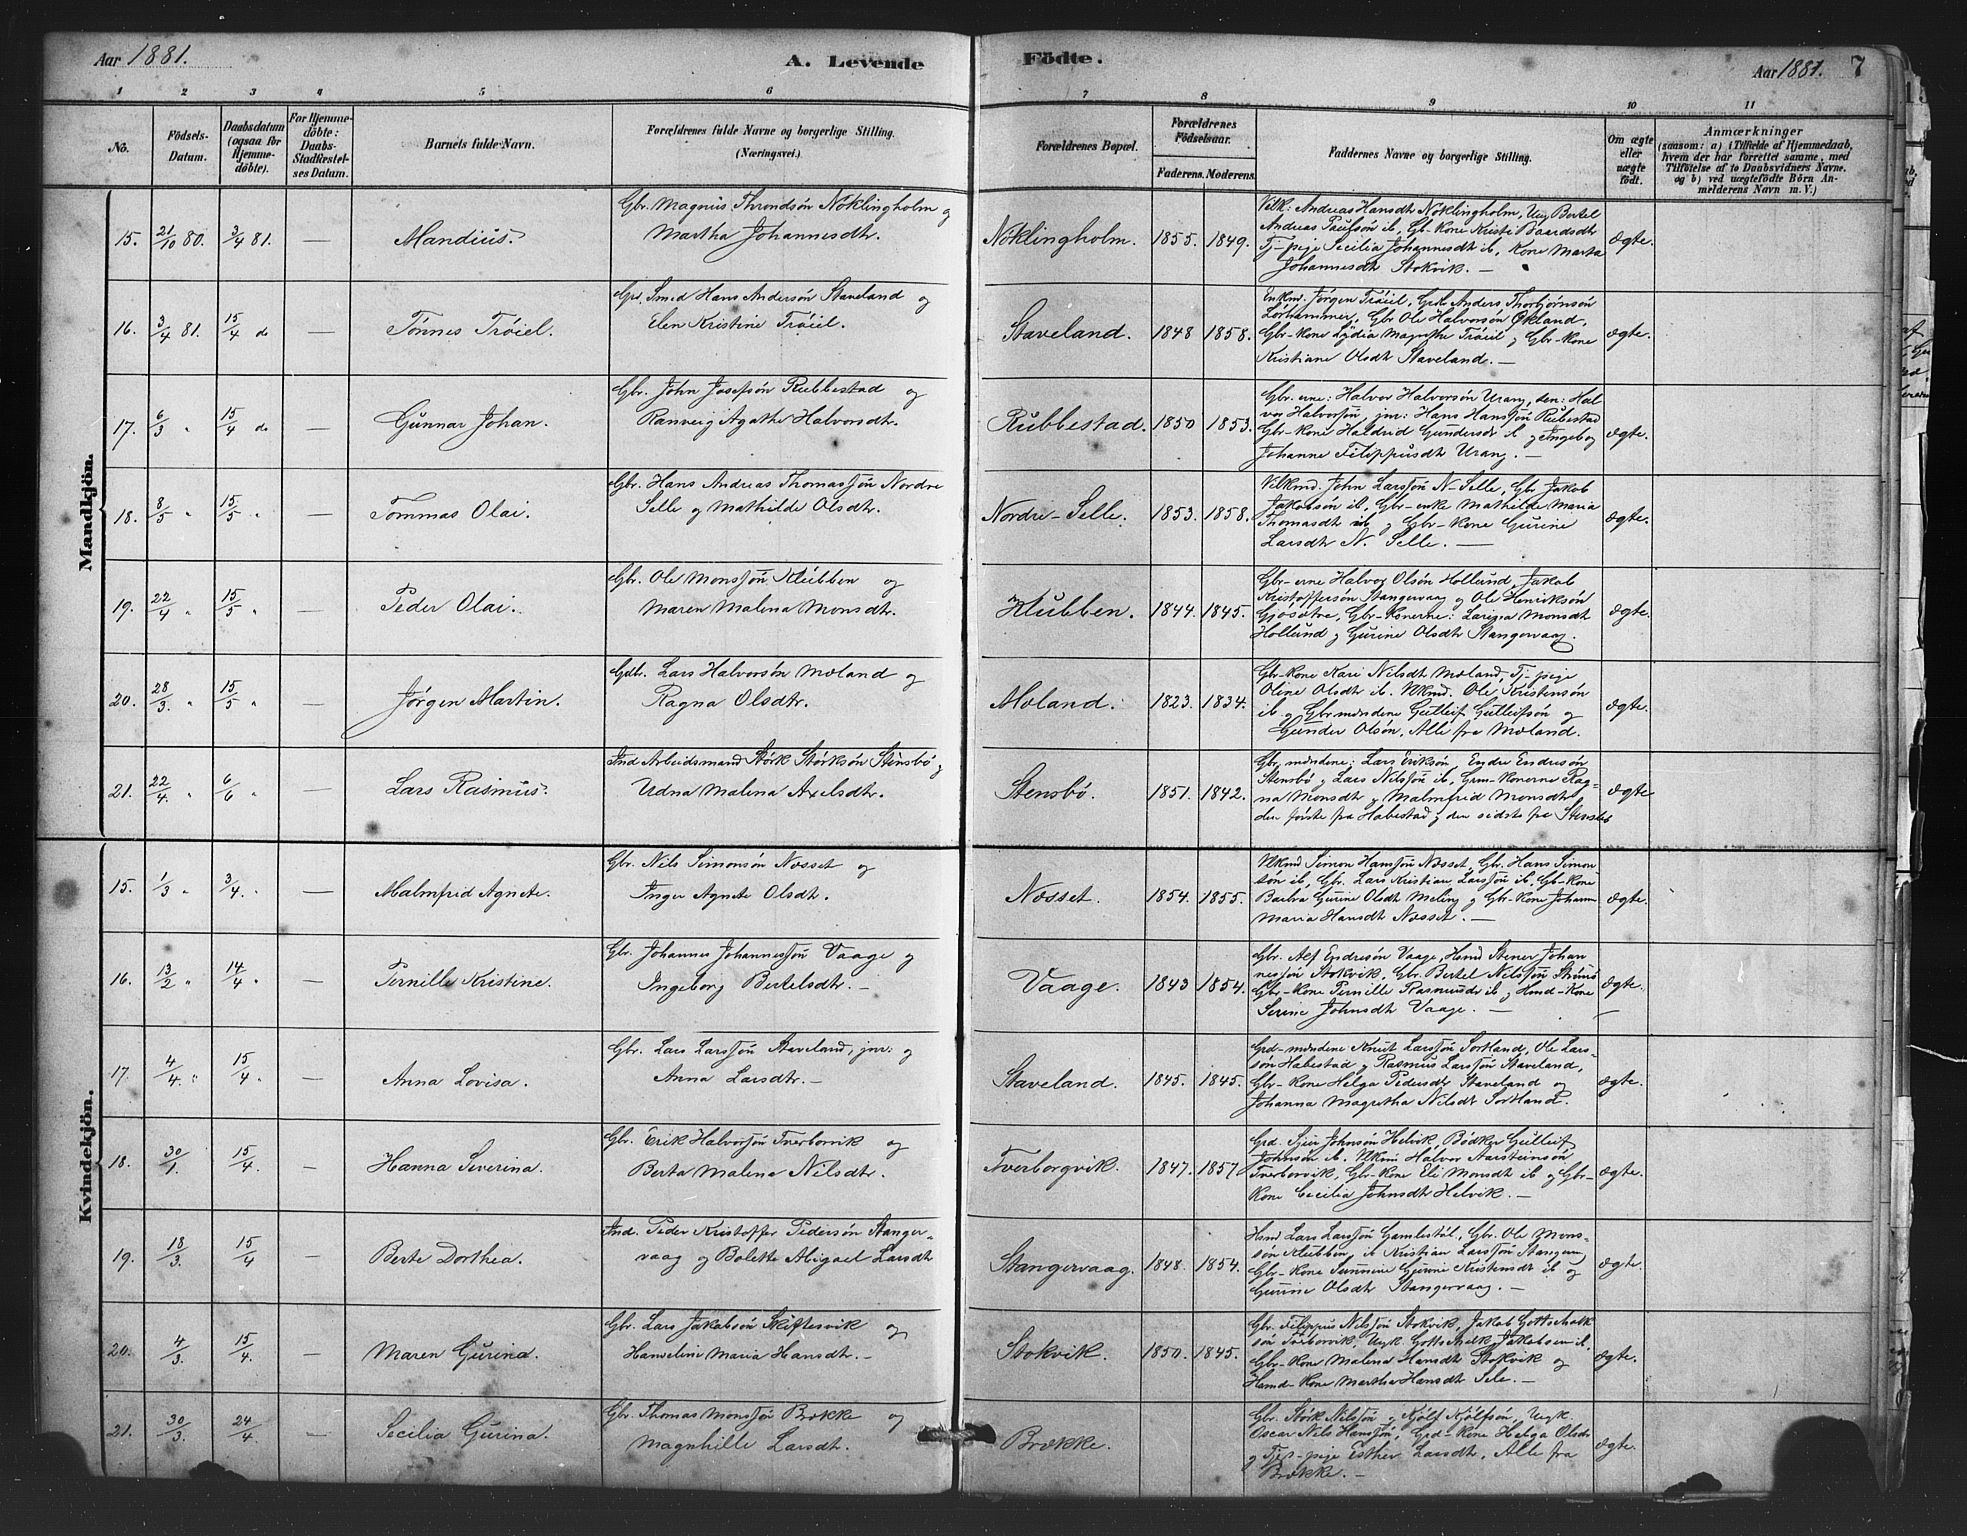 Aar 1881.
A. Levende
Födte.
Aar 1881. 7
1 2 3 4 5 6 7 8 9 10 11
No.
Födsels-Datum.
Daabsdatum (ogsaa for Hjemmedöbte).
For Hjemmedöbte: Daabs-Stadfæstelses Datum.
Barnets fulde Navn.
Forældrenes fulde Navne og borgerlige Stilling. (Næringsvei.)
Forældrenes Bopæl.
Forældrenes Födselsaar.
Faderens. Moderens.
Faddernes Navne og borgerlige Stilling.
Om ægte eller uægte födt.
Anmærkninger
(saasom: a) i Tilfælde af Hjemmedaab, hvem der har forrettet samme, med Tilföielse af to Daabsvidners Navne, og b) ved uægtefödte Börn Anmelderens Navn m. V.)
Mandkjön.
15. 21/10 80. 3/4 81. — Mandius.
Gbr. Magnus Throndsön Nöklingholm og
Martha Johannesdtr.
Nöklingholm. 1855. 1849.
Velk: Andreas Hansdt Nöklingholm, Ung Bertel
Andreas Paulsön ib, Gb-Kone Kristi Baardsdt
Tj-pige Secilia Johannesdt ib, Kone Marta
Johannesdt Stokvik. —
Ægte.
16. 3/4 81. 15/4 do — Tönnes Tröiel.
Gr. Smed Hans Andersön Staveland og
Elen Kristine Tröiel.
Staveland. 1848 1858.
Enkmd. Jörgen Tröiel, Grd. Anders Thorbjörnsön
Lörhammer, Gbr Ole Halvorsön Økland,
Gbr-Kone Lydia Magrethe Tröiel og Gbr-Kone
Kristiane Olsdt Staveland. —
ægte.
17. 6/3 " 15/4 do — Gunnar Johan.
Gbr. John Josefsön Rubbestad og
Ranveig Agathe Halvorsdtr.
Rubbestad. 1850 1853.
Gbr.erne: Halvor Halvorsön Urang, den: Hal
vor Halvorsön, jnr: Hans Hansjön Rubestad
Gbr-Kone Haldrid Gundersdt ib og Ingebog
Johanne Filippusdt Urang. —
ægte.
18. 8/5 " 15/5 " — Tommas Olai.
Gbr. Hans Andreas Thomasjön Nordre
Selle og Mathilde Olsdtr.
Nordre-Selle. 1853. 1858.
Velkmd. John Larsjön N-Selle, Gbr Jakob
Jakobsön ib, Gbr-enke Mathilde Maria
Thomasdt ib og Gbr-Kone Gurine
Larsdtr N. Selle. —
Ægte.
19. 22/4 " 15/5 " — Peder Olai.
Gbr. Ole Monsjön Klubben og
Maren Malena Monsdtr.
Klubben. 1844. 1845.
Gbr-erne Halvor Olsön Hollund, Jakob
Kristoffersön Stangervaag og Ole Henriksön
Gjösætre, Gbr-Konerne: Larigia Monsdt
Hollund og Gurine Olsdt Stangervaag.
Ægte.
20. 28/3. " 15/5 " — Jörgen Martin.
Gdbr. Lars Halvorsön Mæland og
Ragna Olsdtr.
Mæland. 1823. 1834.
Gbr-Kone Kari Nilsdt Mæland, Tj-pige
Oline Olsdt ib. Ukmd. Ole Kristensön
ib og Gbrmændene Gulleif Gulleifsön og
Gunder Olsön, Alle fra Mæland.
Ægte.
21. 22/4. " 6/6 " — Lars Rasmus.
Ind Arbeidsmand Störk Störksön Stensbö og
Udna Malena Axelsdtr.
Stensbö. 1851. 1842.
Gbr.mændene: Lars Eriksön, Endre Endresön
Stensbö og Lars Nilsjön ib, Grm-Konerne Rag-
na Monsdt og Malmfrid Monsdt
den förste fra Habestad og den sidste fra Stensbö
ægte
Kvindekjön.
15. 1/3 " 3/4 " — Malmfrid Agnete.
Gbr. Nils Simonsön Næsset og
Inger Agnete Olsdtr.
Næsset. 1854. 1855.
Ukmd Simon Hansjön Næsset, Gbr. Hans Simon
sön ib, Gbr. Lars Kristian Larsjön ib, Gb-Kone
Barbra Gurine Olsdt Meling og Gbr-Kone Johann
Maria Hansdt Næsset. —
ægte.
16. 13/2 " 14/4 " — Pernille Kristine.
Gbr. Johannes Johannesjön Vaage og
Ingeborg Bertelsdtr. —
Vaage. 1843 1854.
Gbr. Alf Endresön Vaage, Hmd Stener Johan
nesjön Stokvik, Gbr. Bertel Nilsjön Strömö
Gbr-Kone Pernille Rasmusdt ib og Hmd-Kone
Serine Johnsdt Vaage. —
ægte.
17. 4/4. " 15/4 " — Anna Lovisa.
Gbr. Lars Larsjön Staveland, jnr: og
Anna Larsdtr. —
Staveland. 1845. 1845.
Grd-mændene Knut Larsjön Sortland, Ole Lars-
sön Habestad og Rasmus Larsjön Staveland,
Gbr-Kone Helga Pedersdt Staveland og
Johanna Magretha Nilsdt Sortland.
ægte.
18. 30/1. 15/4. — Hanna Severina.
Gbr. Erik Halvorsjön Tverborvik og
Berta Malena Nilsdtr.
Tverborgvik. 1847. 1857
Grd. Sjur Johnsön Helvik, Bödker Gulleif
Johnsön ib. Ukmd Halvor Aarsteinsön
Tverborvik, Gbr-Kone Eli Monsdt ib og Gbr-
Kone Cecilia Johnsdt Helvik. —
ægte.
19. 18/3. 15/4 — Berte Dorthea.
Ind. Peder Kristoffer Pedersön Stanger-
vaag og Bolette Abigael Larsdt
Stangervaag. 1848. 1854.
Hmd Lars Larsjön Gamlestöl, Gbr. Ole Mons-
sön Klubben, ib Kristian Larsjön Stangerv.
Gbr-Kone Gurine Kristensdt ib og
Gurine Olsdt Stangervaag. —
Ægte.
20. 4/3. 15/4. — Maren Gurina.
Gbr. Lars Jakobsön Skiftesvik og
Hanseline Maria Hansdtr. —
Stokvik. 1850. 1845.
Gbr. Filippus Nilsjön Stokvik, Jakob Gottschalk
sön Tverborvik, Ungk Gottschalk Jakobsen ib,
Gbr-Kone Malena Hansdt Stokvik og
Hmd-Kone Martha Hansdt Sele. —
ægte.
21. 30/3. 24/4. — Secilia Gurina.
Gbr. Thomas Monsjön Brække og
Magnhille Larsdt.
Brække.
Gbr. Störk Nilsjön og Kjölf Kjölfsön, Ungk
Oscar Nils Hansjön, Grd-Kone Helga Olsdt
og Tjen-pige Esther Larsdt, Alle fra
Brække. —
Ægte.